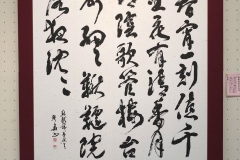 春宵一刻値千
金花有清香月
有陰歌管樓台
聲細々鞦韆院
落夜沈々